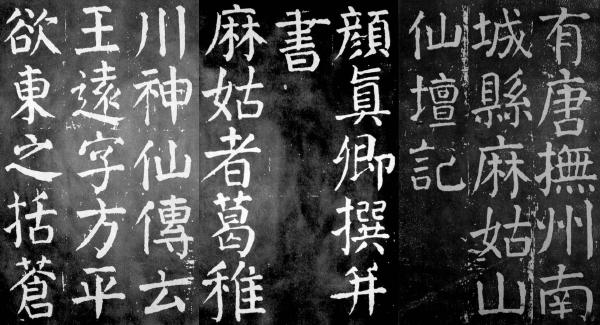 有唐撫州南
城縣麻姑山
仙壇記
顏眞卿撰并
書
麻姑者葛稚
川神仙傳云
王遠字方平
欲東之括蒼